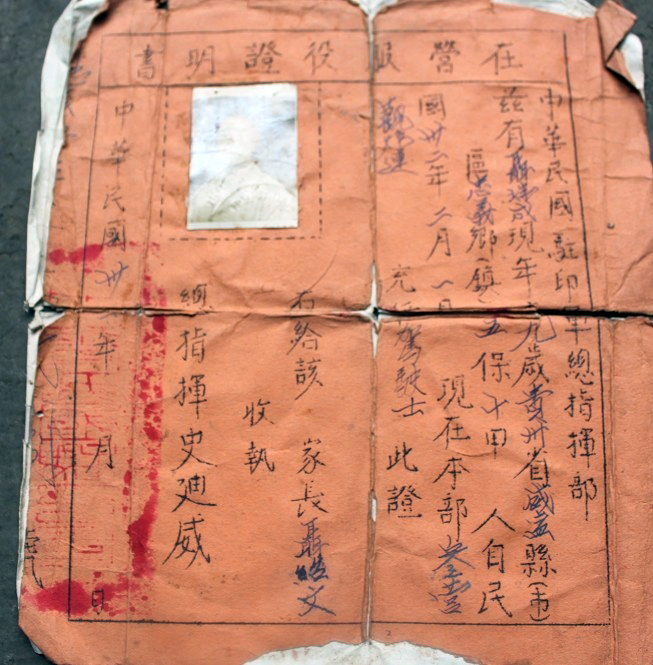 在營服役證明書
中華民國駐印軍總指揮部
茲有聶瑞成現年 九歲貴州省威寧縣(市)
區忠義鄉(鎮)五保十甲 人自民
國卅二年二月一日 現在本部
充任駕駛士 此證
右給該 家長聶 文
收執
總指揮史迪威
中華民國卅 年 月 日